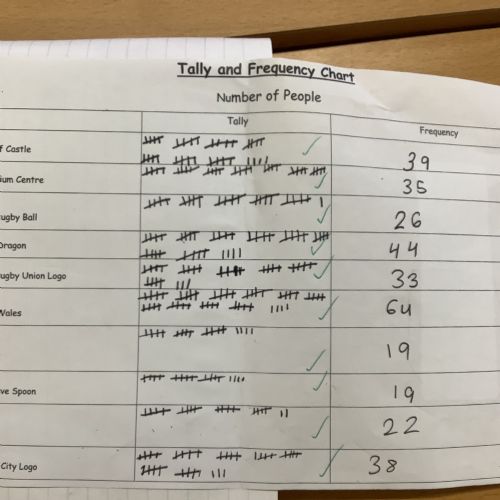 Tally and Frequency Chart
Number of People
Tally Frequency
f Castle 39
ium Centre 35
ugby Ball 26
Dragon 44
ugby Union Logo 33
Wales 64
19
ve Spoon 19
22
City Logo 38